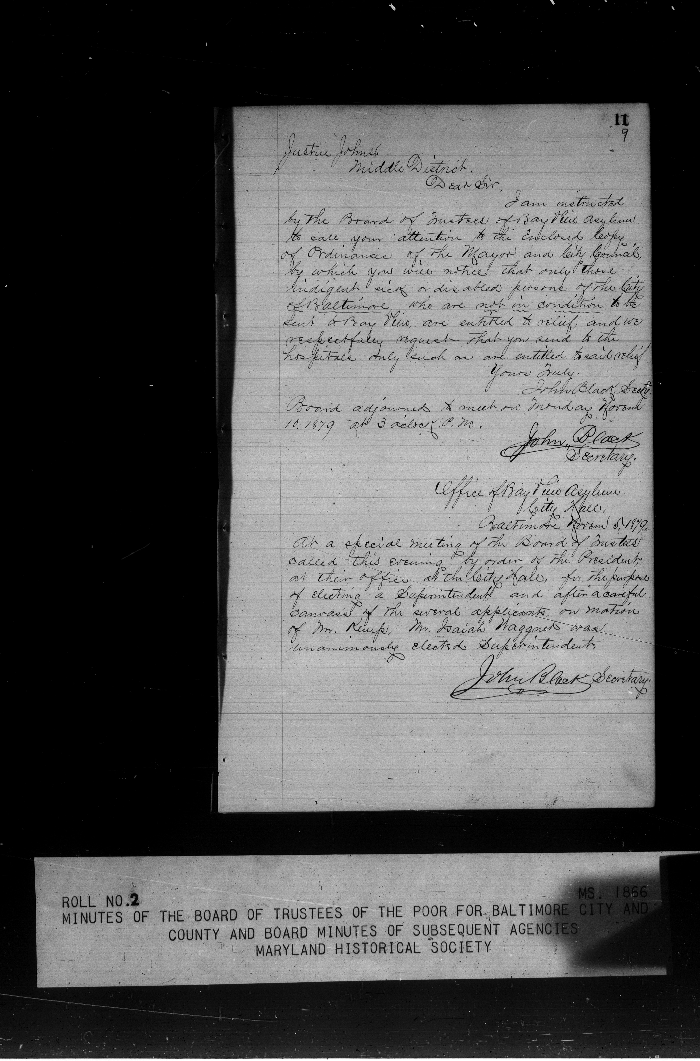 11
9
Justice Johns
Middle District.
Dear Sir,
I am instructed
by the Board of Trustees of Bay View Asylum
to call your attention to the Enclosed Copy
of Ordinance of the Mayor and City Council,
by which you will notice that only those
indigent sick or disabled persons of the City
of Baltimore who are not in condition to be
sent to Bay View are entitled to relief, and we
respectfully request that you send to the
hospitals only such as are entitled to said relief
Yours Truly.
John Black Secty
Board adjourned to meet on Monday Novem
10, 1879 at 3 oclock P.M.
John Black
Secretary.
Office of Bay View Asylum
City Hall.
Baltimore Novem 5, 1879.
At a special meeting of the Board of Trustees
called this evening by order of the President
at their office at the City Hall for the purpose
of electing a Superintendent and after a careful
Canvass of the several applicants, on motion
of Mr. Kemp, Mr. Isaiah Waggner was
unanimously elected Superintendent
John Black Secretary.
ROLL NO.2
MS. 1866
MINUTES OF THE BOARD OF TRUSTEES OF THE POOR FOR BALTIMORE CITY AND
COUNTY AND BOARD MINUTES OF SUBSEQUENT AGENCIES
MARYLAND HISTORICAL SOCIETY